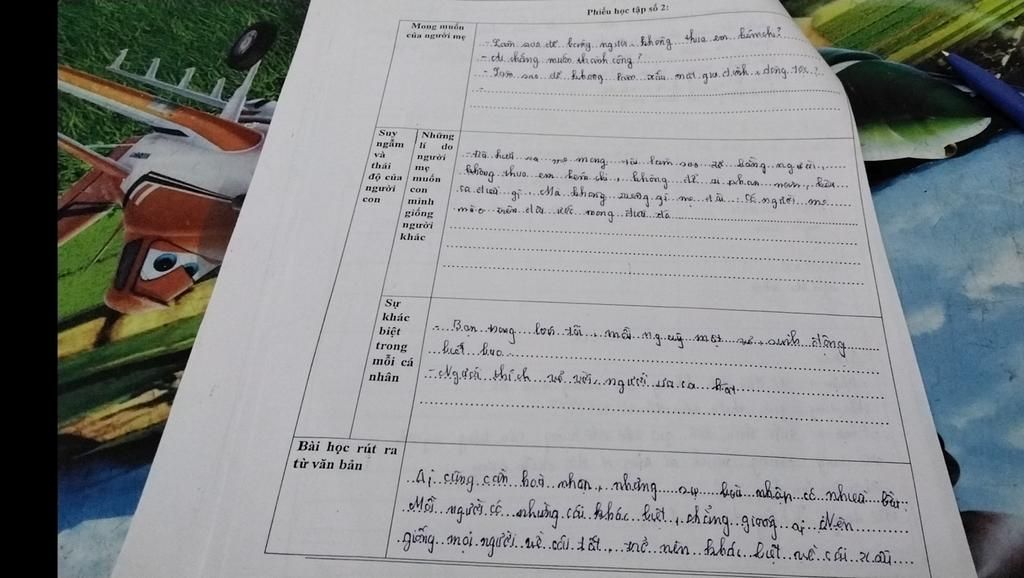 Phiếu học tập số 2:
Mong muốn
của người mẹ
- Làm sao để bằng người, không thua em kém chị?
- ai chẳng muốn thành công?
- Làm sao để không làm xấu mặt gia đình, dòng tộc?
Suy
ngẫm
và
thái
độ của
người
con
Những
lí do
người
mẹ
muốn
con
mình
giống
người
khác
- Tôi hiểu ra mẹ mong tôi làm sao để bằng người,
không thua em kém chị, không để ai phàn nàn, kêu
ca điều gì. Mà không riêng gì mẹ tôi. Có người mẹ
nào trên đời ước mong điều đó
Sự
khác
biệt
trong
mỗi cá
nhân
- Bạn trong lớp tôi, mỗi người một vẻ, sinh động
biết bao.
- Người thích vẽ vời, người ưa ca hát
Bài học rút ra
từ văn bản
Ai cũng cần hoà nhập, nhưng sự hoà nhập có nhiều
Mỗi người có những cái khác biệt, chẳng giống ai. Nên
giống mọi người về cái tốt, nên khác biệt về cái xấu